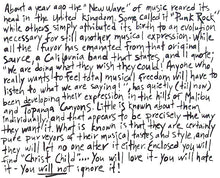 About a year ago the "New Wave" of music reared its
head in the United Kingdom. Some called it "Punk Rock"
while others simply attributed its birth to an evolution
necessary for still another musical expression. While
all the furor has emanated from that original
source, a California band that states, and more,
"We are doing what they wish they could. Anyone who
really wants to feel total musical freedom will have to
listen to what we are saying!", has quietly (till now)
been developing their expression in the hills of Malibu
and Topanga Canyons. Little is known about them
individually, and that appears to be precisely the way
they want it. What is known is that they are certainly
pure purveyors of their musical tastes and style, and
they will let no one alter it either. Enclosed you will
find "Christ Child"... You will love it - You will hate
it - You will not ignore it!